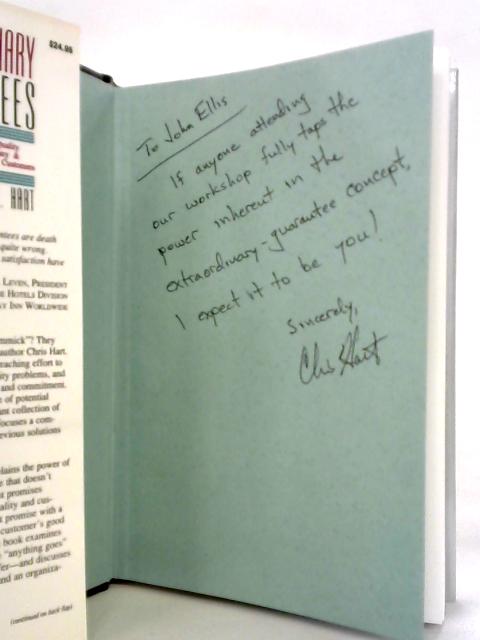 $24.95
HART
ntees are death
quite wrong.
satisfaction have
LEVEN, PRESIDENT
HOTELS DIVISION
INN WORLDWIDE
mmick"? They
author Chris Hart.
reaching effort to
ity problems, and
and commitment.
of potential
ant collection of
focuses a com-
evious solutions
lains the power of
that doesn't
t promises
ality and cus-
promise with a
customer's good
book examines
"anything goes"
fer—and discusses
nd an organiza-
(continued on back flap)
To John Ellis
If anyone attending
our workshop fully taps the
power inherent in the
extraordinary-guarantee concept,
I expect it to be you!
Sincerely,
Chris Hart